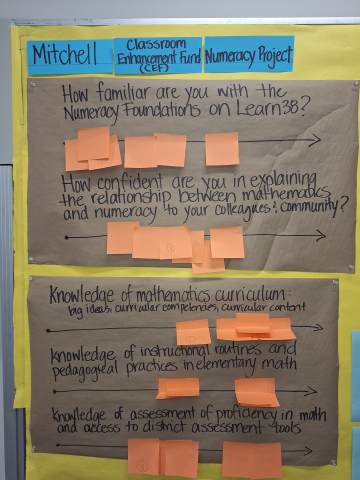 Mitchell
Classroom
Enhancement Fund
(CEF)
Numeracy Project
How familiar are you with the
Numeracy Foundations on Learn38?
How confident are you in explaining
the relationship between mathematics
and numeracy to your colleagues & community?
Knowledge of mathematics curriculum:
big ideas, curricular competencies, curricular content
Knowledge of instructional routines and
pedagogical practices in elementary math
Knowledge of assessment of proficiency in math
and access to district assessment tools